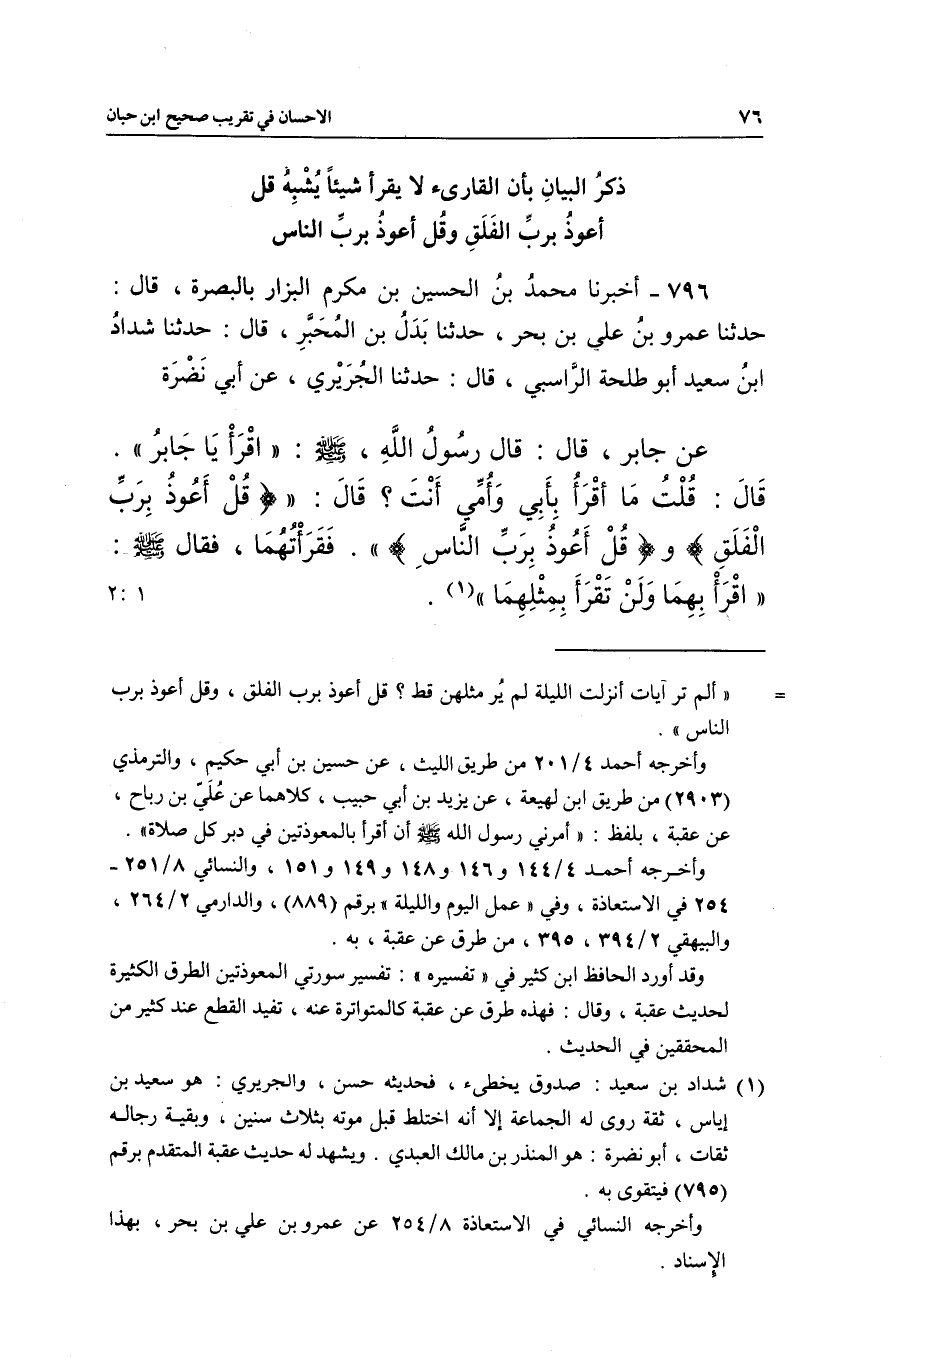 ٧٦ الاحسان في تقريب صحيح ابن حبان
ذكرُ البيانِ بأن القارىء لا يقرأ شيئاً يُشْبِهُ قل
أعوذُ بربِّ الفَلَقِ وقُل أعوذُ بربِّ الناس
٧٩٦ - أخبرنا محمدُ بنُ الحسين بن مكرم البزار بالبصرة ، قال :
حدثنا عمرو بنُ علي بن بحر ، حدثنا بَدَلُ بن المُحَبَّرِ ، قال : حدثنا شدادُ
ابنُ سعيد أبو طلحة الرَّاسبي ، قال : حدثنا الجُرَيْري ، عن أبي نَضْرَة
عن جابر ، قال : قال رسولُ اللَّهِ ، ﷺ : « اقْرَأْ يَا جَابِرُ » .
قَالَ : قُلْتُ مَا أقْرَأُ بِأَبِي وَأُمِّي أَنْتَ ؟ قَالَ : « ﴿ قُلْ أَعُوذُ بِرَبِّ
الْفَلَقِ ﴾ و ﴿ قُلْ أَعُوذُ بِرَبِّ النَّاسِ ﴾ » . فَقَرَأْتُهُمَا ، فقال ﷺ :
« اقْرَأْ بِهِمَا وَلَنْ تَقْرَأَ بِمِثْلِهِمَا »(١) . ١ :٢
= « ألم تر آيات أنزلت الليلة لم يُر مثلهن قط ؟ قل أعوذ برب الفلق ، وقل أعوذ برب
الناس » .
وأخرجه أحمد ٢٠١/٤ من طريق الليث ، عن حسين بن أبي حكيم ، والترمذي
(٢٩٠٣) من طريق ابن لهيعة ، عن يزيد بن أبي حبيب ، كلاهما عن عُلَيّ بن رباح ،
عن عقبة ، بلفظ : « أمرني رسول الله ﷺ أن أقرأ بالمعوذتين في دبر كل صلاة» .
وأخرجه أحمد ١٤٤/٤ و١٤٦ و١٤٨ و١٤٩ و١٥١ ، والنسائي ٢٥١/٨ -
٢٥٤ في الاستعاذة ، وفي « عمل اليوم والليلة » برقم (٨٨٩) ، والدارمي ٢٦٤/٢ ،
والبيهقي ٣٩٤/٢ ، ٣٩٥ ، من طرق عن عقبة ، به .
وقد أورد الحافظ ابن كثير في « تفسيره » : تفسير سورتي المعوذتين الطرق الكثيرة
لحديث عقبة ، وقال : فهذه طرق عن عقبة كالمتواترة عنه ، تفيد القطع عند كثير من
المحققين في الحديث .
(١) شداد بن سعيد : صدوق يخطىء ، فحديثه حسن ، والجريري : هو سعيد بن
إياس ، ثقة روى له الجماعة إلا أنه اختلط قبل موته بثلاث سنين ، وبقية رجاله
ثقات ، أبو نضرة : هو المنذر بن مالك العبدي . ويشهد له حديث عقبة المتقدم برقم
(٧٩٥) فيتقوى به .
وأخرجه النسائي في الاستعاذة ٢٥٤/٨ عن عمرو بن علي بن بحر ، بهذا
الإِسناد .